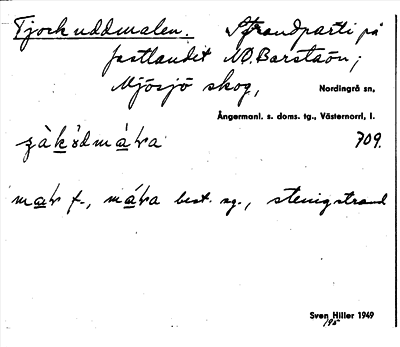 Tjockuddmalen. Strandparti på
fastlandet NO. Barstaön;
Mjösjö skog,
Nordingrå sn,
Ångermanl. s. doms. tg., Västernorrl, l.
709.
mar f., mára best. sg., stenig strand
Sven Hiller 1949
195